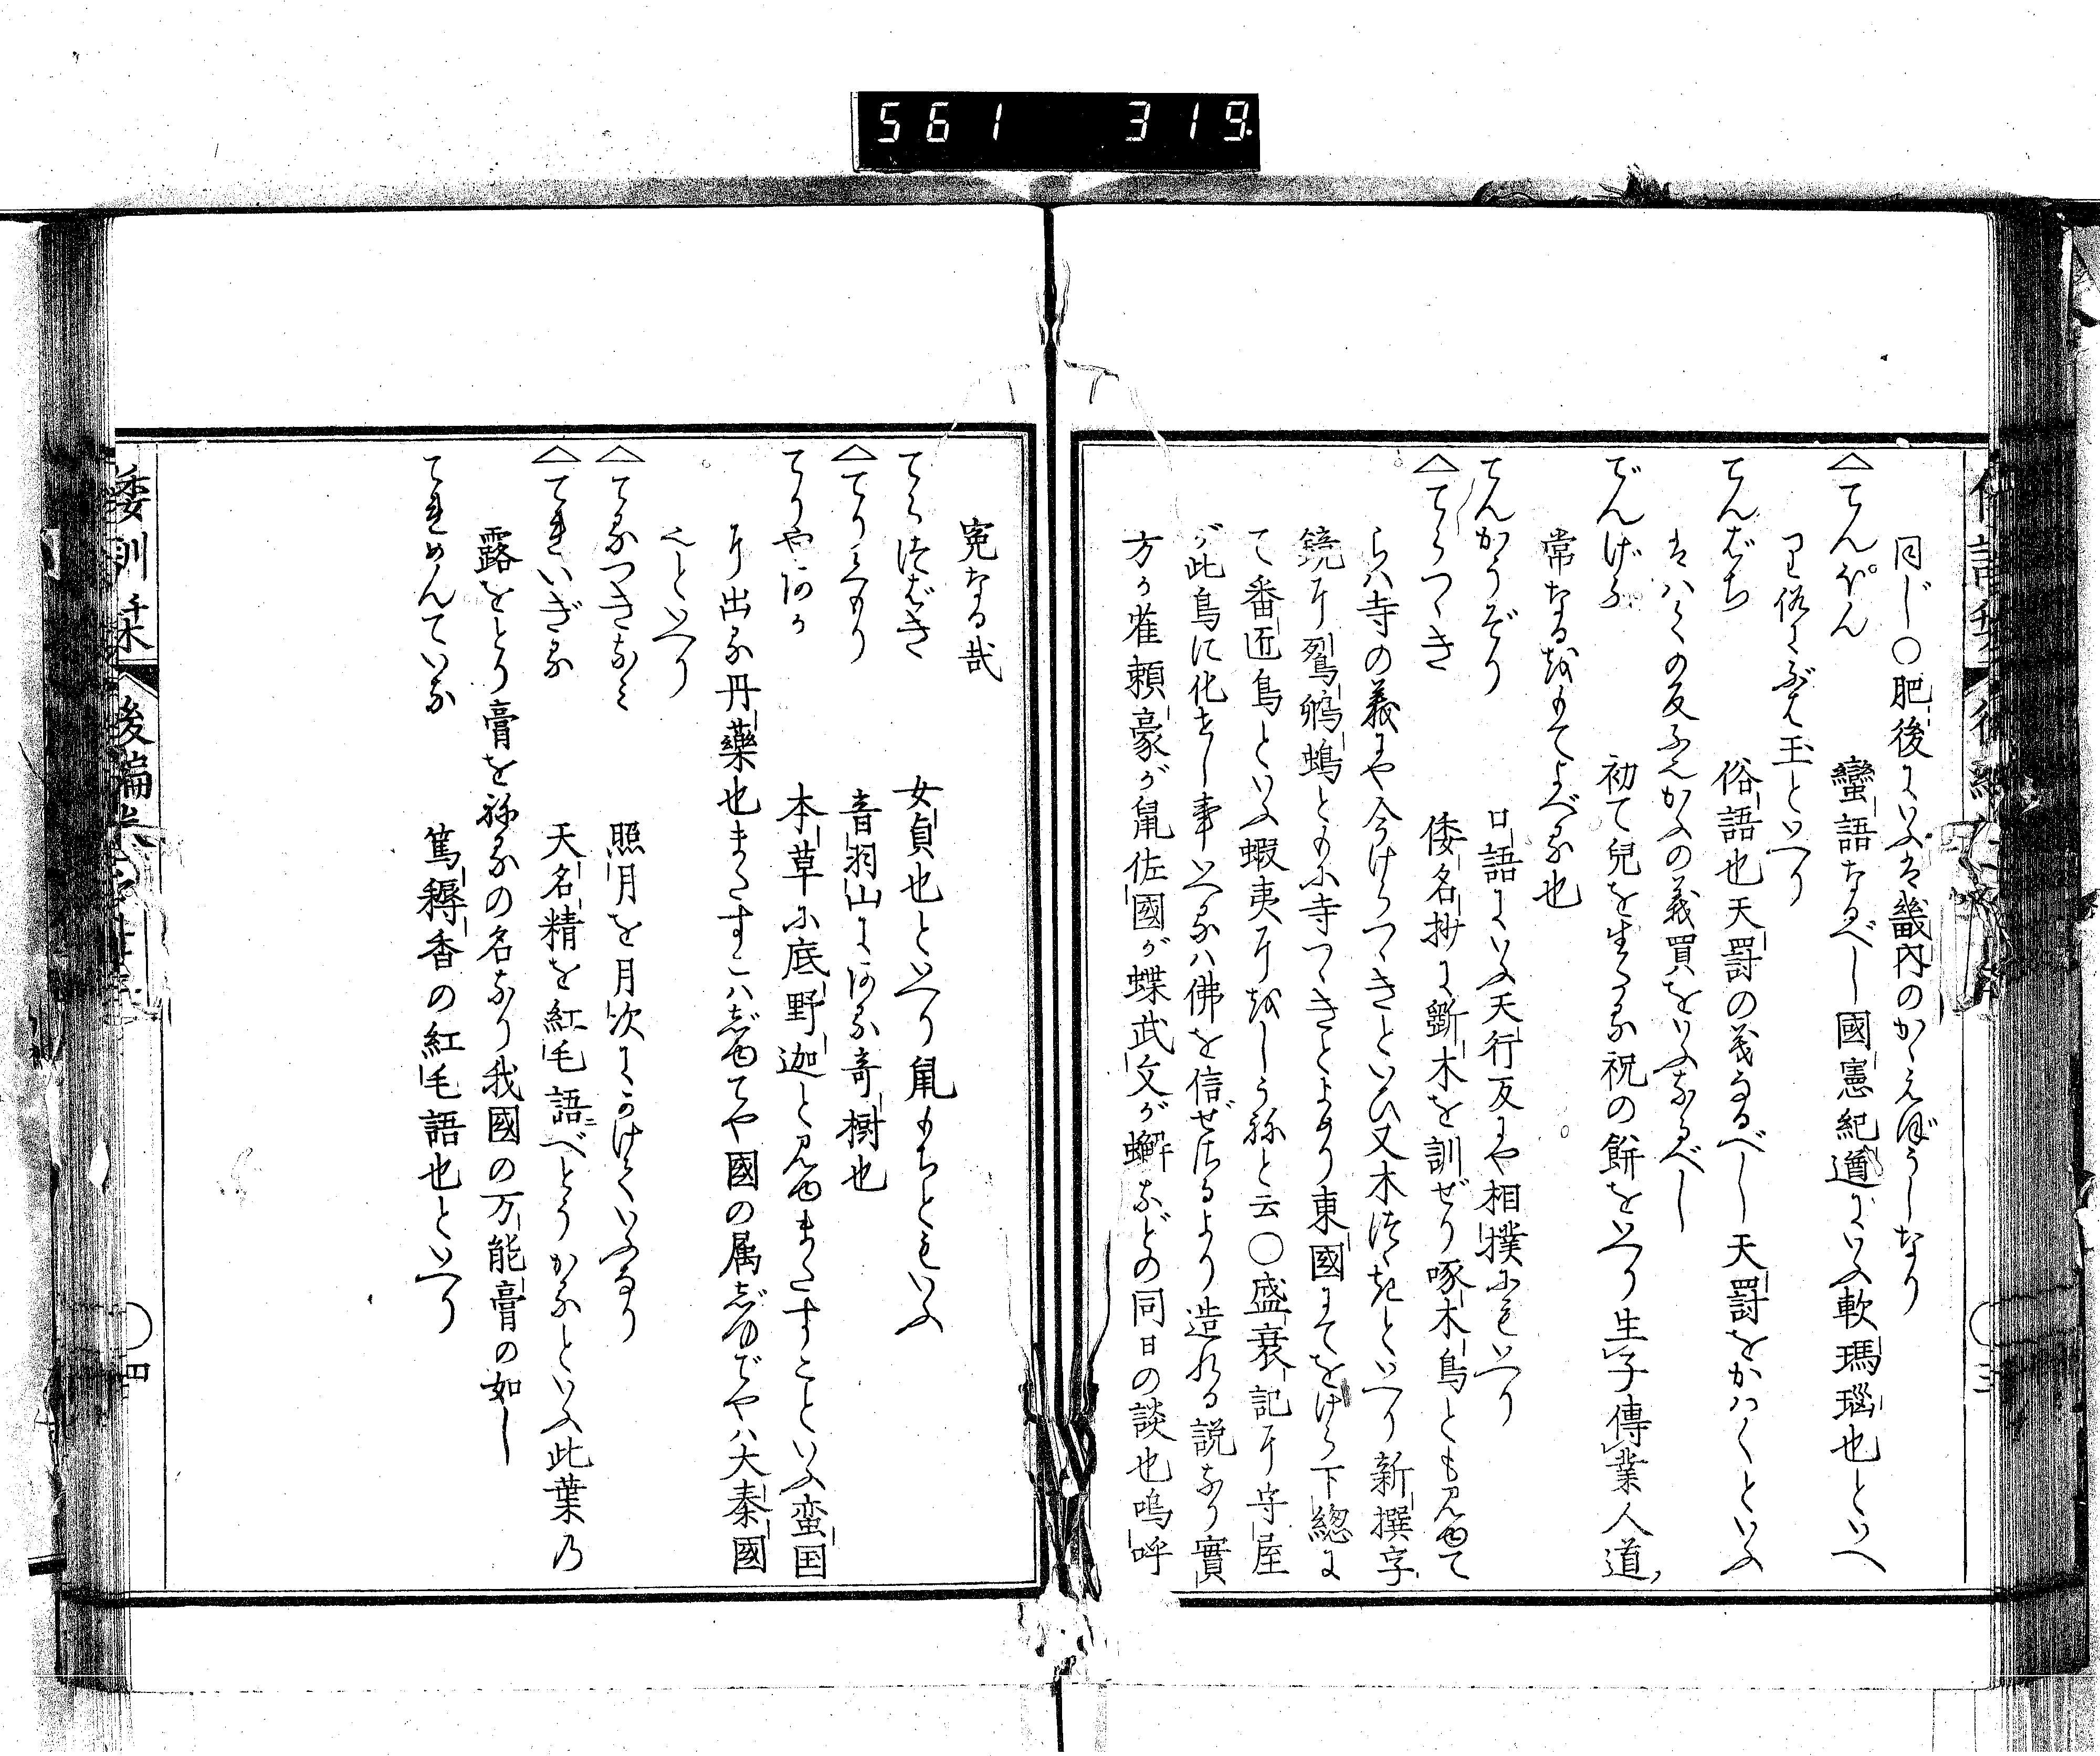 561 319.
同じ〇肥後にいふは畿内のかゝえぼうしなり
△てんぽん 蠻語なるべし國憲紀道にいふ軟瑪瑙也といへ
り俗にぶた玉といへり
てんばち 俗語也天罰の義なるべし天罰をかハくといふ
はハくの反ふかふの義買をいふなるべし
でんげふ 初て兒を生るゝ祝の餅をいへり生子傳業人道
常なるをもてよべる也
てんかうぞり 口語にいふ天行反にや相撲にもいへり
△てらつゝき 倭名抄に斲木を訓ぜり啄木鳥とも見ゆて
らハ寺の義にや今けらつゝきといひ又木つゝきといへり新撰字
鏡に鴷鵃蝪ともに寺つゝきとよめり東國にてをけら下總に
て番匠鳥といふ蝦夷にをしうねと云〇盛衰記に守屋
が此鳥に化せし事いへるハ佛を信ぜざるより造れる説なり實
方が雀頼豪が鼠佐國が蝶武文が蠏などの同日の談也嗚呼
冤なる哉
てらつばき 女貞也といへり鼠もちともいふ
△てりえもり 音羽山にある奇樹也
てりやあか 本草に底野迦と見ゆまたすことといふ蛮国
に出る丹藥也またすこハぢゆてや國の属ぢゆでやハ大秦國
也といへり
△てるつきなみ 照月を月次にかけていふなり
△てれいぎる 天名精を紅毛語べとうかなといふ此葉乃
露をとり膏をねるの名なり我國の万能膏の如し
てれめんていな 篤耨香の紅毛語也といへり
倭訓栞 後編
三
四